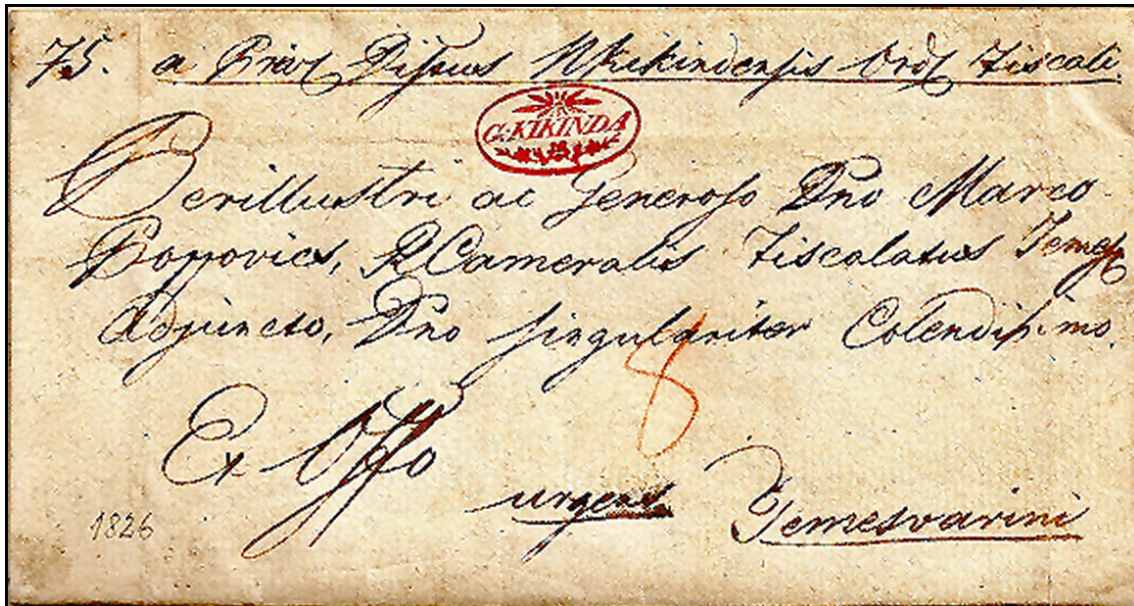 75. a Priv Distus Nkikindensis Ord Fiscali.
G: KIKINDA
Perillustri ac Generoso Dno Marco
Poppovics, R Cameralis Fiscalatus Temes
Adjuncto, Dno singulariter Colendissimo.
8
Ex Offo
urgens
Temesvarini
1826